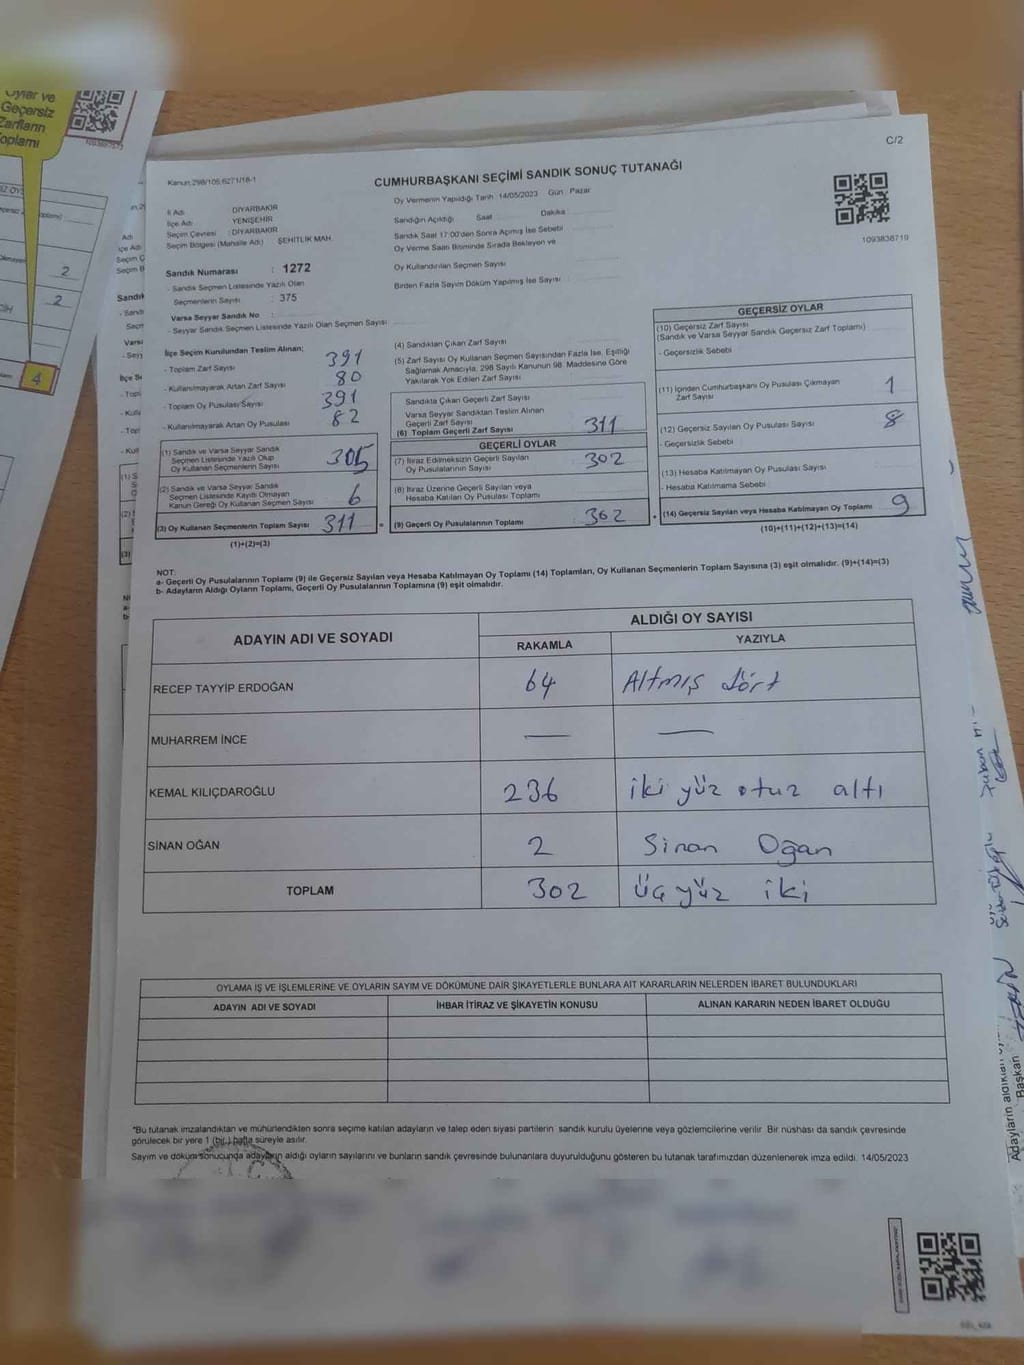 Oylar ve
Geçersiz
Zarfların
Toplamı
2
2
4
C/2
Kanun:298/105,6271/18-1
CUMHURBAŞKANI SEÇİMİ SANDIK SONUÇ TUTANAĞI
1093838719
İl Adı : DİYARBAKIR
İlçe Adı : YENİŞEHİR
Seçim Çevresi : DİYARBAKIR
Seçim Bölgesi (Mahalle Adı) : ŞEHİTLİK MAH.
Sandık Numarası : 1272
- Sandık Seçmen Listesinde Yazılı Olan
Seçmenlerin Sayısı : 375
Varsa Seyyar Sandık No :
- Seyyar Sandık Seçmen Listesinde Yazılı Olan Seçmen Sayısı :
Oy Vermenin Yapıldığı Tarih : 14/05/2023 Gün : Pazar
Sandığın Açıldığı Saat Dakika
Sandık Saat 17:00'den Sonra Açmış İse Sebebi
Oy Verme Saati Bitiminde Sırada Bekleyen ve
Oy Kullandırılan Seçmen Sayısı
Birden Fazla Sayım Döküm Yapılmış İse Sayısı
İlçe Seçim Kurulundan Teslim Alınan;
- Toplam Zarf Sayısı 391
- Kullanılmayarak Artan Zarf Sayısı 80
- Toplam Oy Pusulası Sayısı 391
- Kullanılmayarak Artan Oy Pusulası 82
(1) Sandık ve Varsa Seyyar Sandık
Seçmen Listesinde Yazılı Olup
Oy Kullanan Seçmenlerin Sayısı 305
(2) Sandık ve Varsa Seyyar Sandık
Seçmen Listesinde Kayıtlı Olmayan
Kanun Gereği Oy Kullanan Seçmen Sayısı 6
(3) Oy Kullanan Seçmenlerin Toplam Sayısı 311 =
(1)+(2)=(3)
(4) Sandıktan Çıkan Zarf Sayısı
(5) Zarf Sayısı Oy Kullanan Seçmen Sayısından Fazla İse, Eşitliği
Sağlamak Amacıyla, 298 Sayılı Kanunun 98. Maddesine Göre
Yakılarak Yok Edilen Zarf Sayısı
Sandıkta Çıkan Geçerli Zarf Sayısı
Varsa Seyyar Sandıktan Teslim Alınan
Geçerli Zarf Sayısı
(6) Toplam Geçerli Zarf Sayısı 311
GEÇERLİ OYLAR
(7) İtiraz Edilmeksizin Geçerli Sayılan
Oy Pusulalarının Sayısı 302
(8) İtiraz Üzerine Geçerli Sayılan veya
Hesaba Katılan Oy Pusulası Toplamı
(9) Geçerli Oy Pusulalarının Toplamı : 302 +
GEÇERSİZ OYLAR
(10) Geçersiz Zarf Sayısı
(Sandık ve Varsa Seyyar Sandık Geçersiz Zarf Toplamı)
- Geçersizlik Sebebi
(11) İçinden Cumhurbaşkanı Oy Pusulası Çıkmayan
Zarf Sayısı 1
(12) Geçersiz Sayılan Oy Pusulası Sayısı 8
- Geçersizlik Sebebi
(13) Hesaba Katılmayan Oy Pusulası Sayısı
- Hesaba Katılmama Sebebi
(14) Geçersiz Sayılan veya Hesaba Katılmayan Oy Toplamı 9
(10)+(11)+(12)+(13)=(14)
NOT:
a- Geçerli Oy Pusulalarının Toplamı (9) ile Geçersiz Sayılan veya Hesaba Katılmayan Oy Toplamı (14) Toplamları, Oy Kullanan Seçmenlerin Toplam Sayısına (3) eşit olmalıdır. (9)+(14)=(3)
b- Adayların Aldığı Oyların Toplamı, Geçerli Oy Pusulalarının Toplamına (9) eşit olmalıdır.
ADAYIN ADI VE SOYADI
ALDIĞI OY SAYISI
RAKAMLA YAZIYLA
RECEP TAYYİP ERDOĞAN 64 Altmış dört
MUHARREM İNCE — —
KEMAL KILIÇDAROĞLU 236 iki yüz otuz altı
SİNAN OĞAN 2 Sinan Oğan
TOPLAM 302 Üç yüz iki
OYLAMA İŞ VE İŞLEMLERİNE VE OYLARIN SAYIM VE DÖKÜMÜNE DAİR ŞİKAYETLERLE BUNLARA AİT KARARLARIN NELERDEN İBARET BULUNDUKLARI
ADAYIN ADI VE SOYADI İHBAR İTİRAZ VE ŞİKAYETİN KONUSU ALINAN KARARIN NEDEN İBARET OLDUĞU
*Bu tutanak imzalandıktan ve mühürlendikten sonra seçime katılan adayların ve talep eden siyasi partilerin sandık kurulu üyelerine veya gözlemcilerine verilir. Bir nüshası da sandık çevresinde
görülecek bir yere 1 (bir) hafta süreyle asılır.
Sayım ve döküm sonucunda adayların aldığı oyların sayılarını ve bunların sandık çevresinde bulunanlara duyurulduğunu gösteren bu tutanak tarafımızdan düzenlenerek imza edildi. 14/05/2023
Adayların aldıkları
Başkan